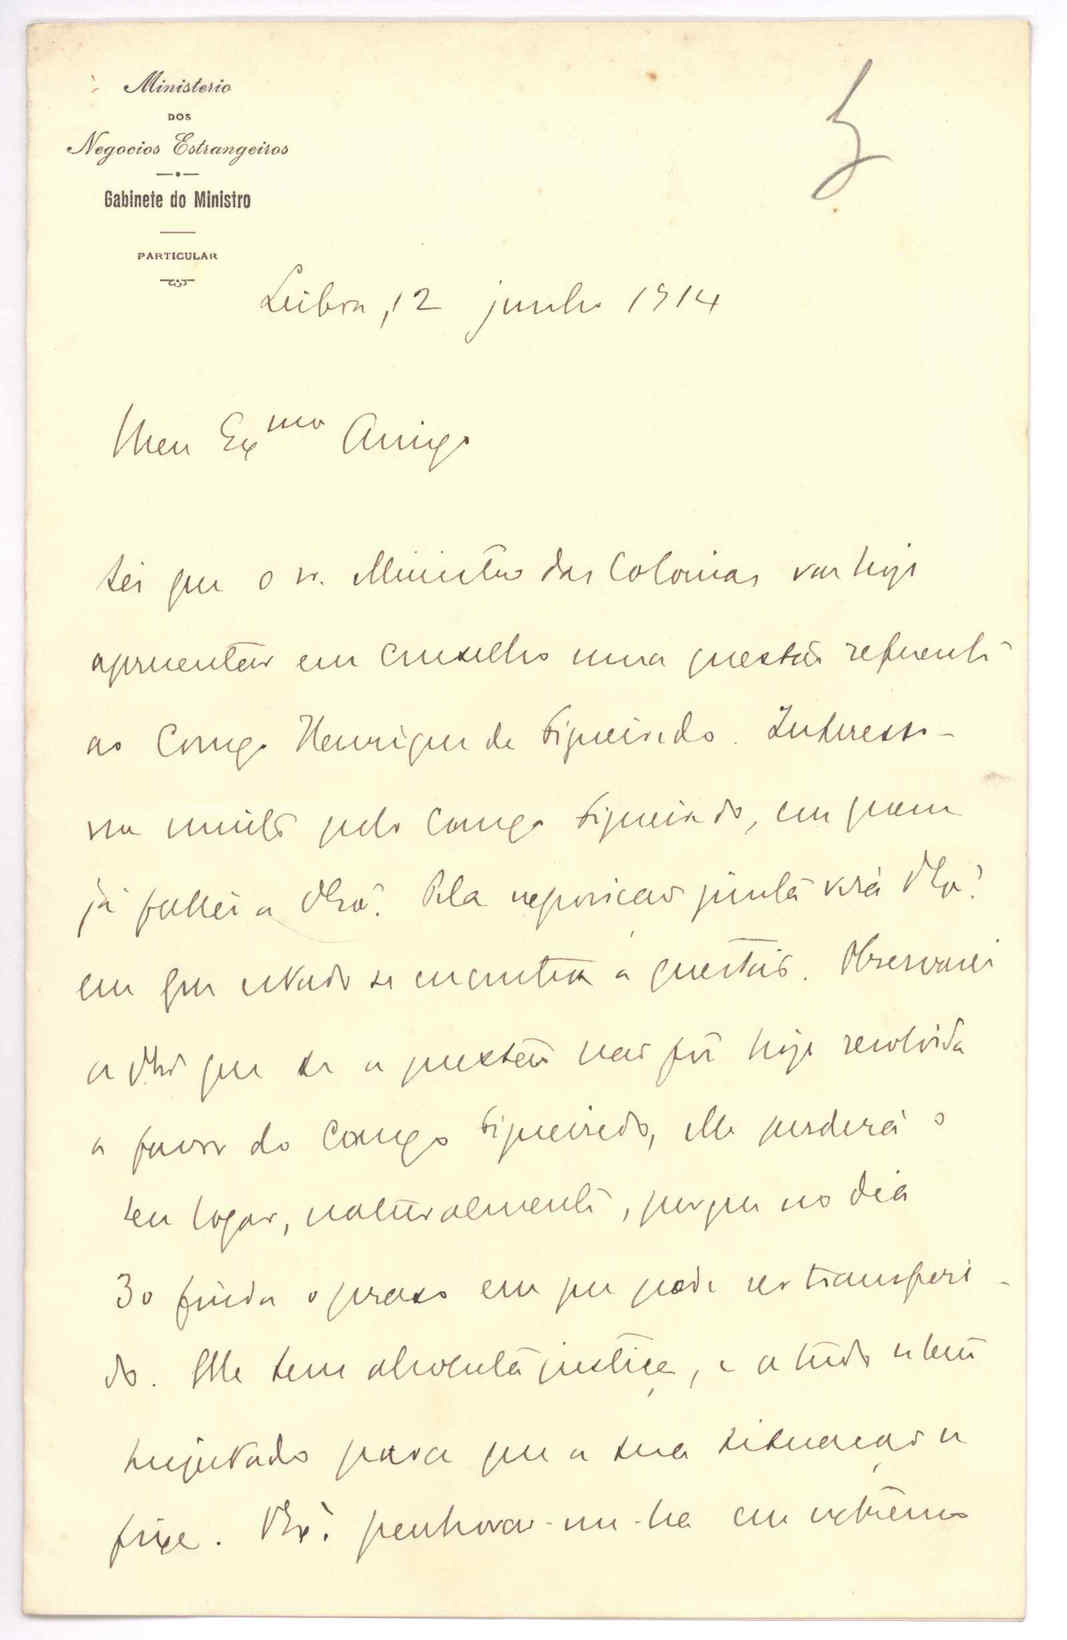 Ministerio
DOS
Negocios Estrangeiros
Gabinete do Ministro
PARTICULAR
Lisboa, 12 junho 1914
Meu Exmo Amigo
Sei que o sr. Ministro das Colonias vae hoje
apresentar em conselho uma questão referente
ao Conego Henrique de Figueiredo. Interesso-
me muito pelo Conego Figueiredo, em quem
já fallei a V. Exa. Pela exposição junta verá V. Exa.
em que estado se encontra a questão. Observarei
a V. Exa que se a questão não fôr hoje resolvida
a favor do Conego Figueiredo, elle perderá o
seu logar, naturalmente, porque no dia
30 finda o praso em que pode ser transferi-
do. Elle tem absoluta justiça, e a tudo se tem
sujeitado para que a sua situação se
fixe. V. Exa. penhorar-me-ha em extremo